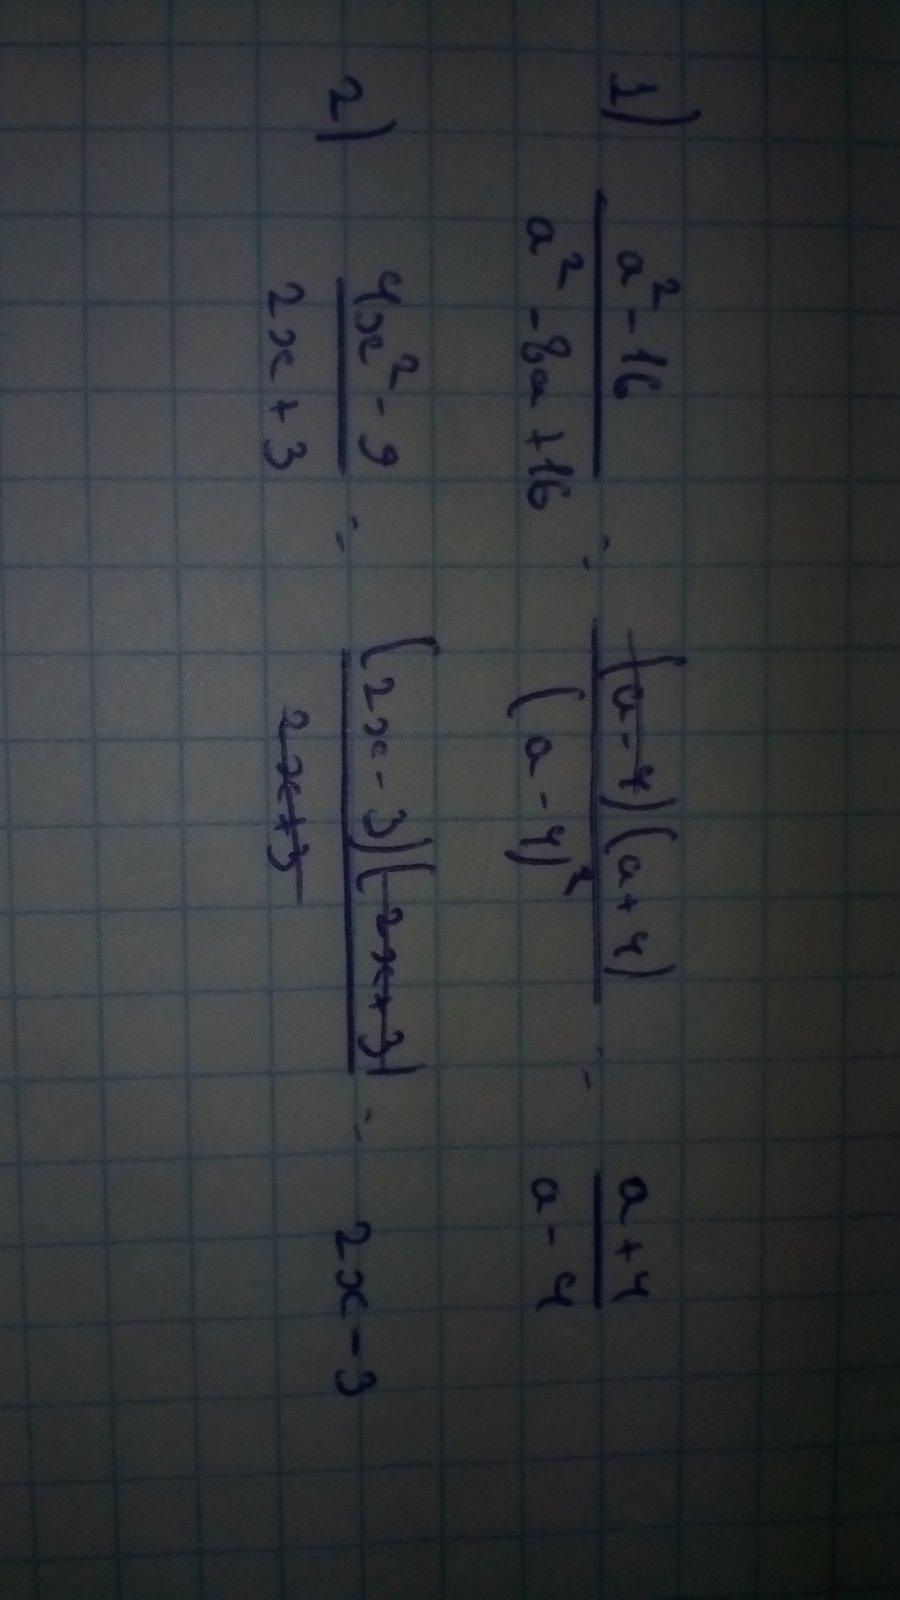 1) (a² - 16)/(a² - 8a + 16) = ((a - 4)(a + 4))/((a - 4)²) = (a + 4)/(a - 4)
2) (4x² - 9)/(2x + 3) = ((2x - 3)(2x + 3))/(2x + 3) = 2x - 3